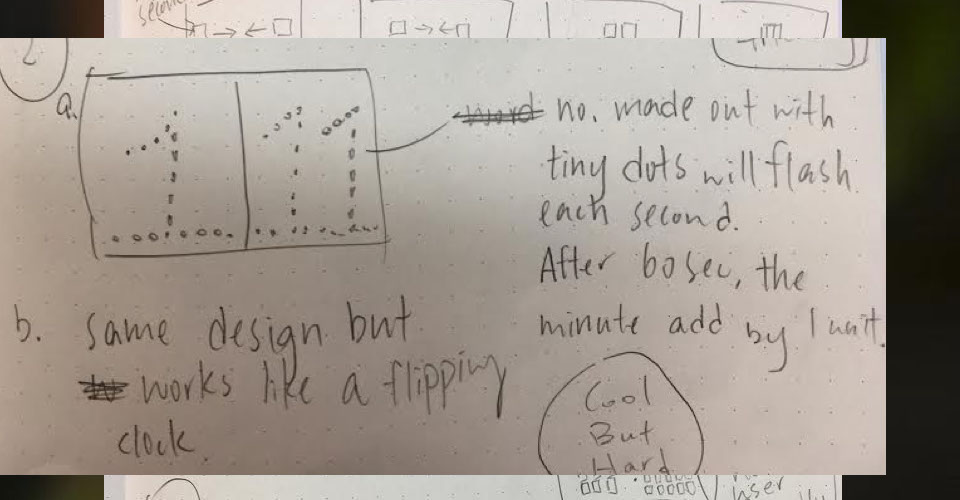 second
2
a.
no. made out with
tiny dots will flash
each second.
After 60 sec, the
minute add by 1 unit.
b. same design but
works like a flipping
clock.
Cool
But
Hard